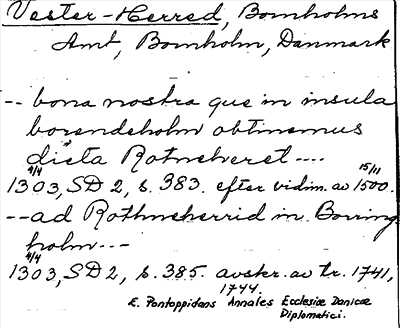 Vester-Herred, Bornholms
Amt, Bornholm, Danmark
-- bona nostra que in insula
borendeholm obtinemus
dicta Rotneheret ----
4/4 15/11
1303, SD 2, s. 383. efter vidim. av 1500.
-- ad Rothneherrid in Borring
holm ---
4/4
1303, SD 2, s. 385. avskr. av tr. 1741,
1744.
E. Pontoppidans Annales Ecclesiæ Danicæ
Diplomatici.